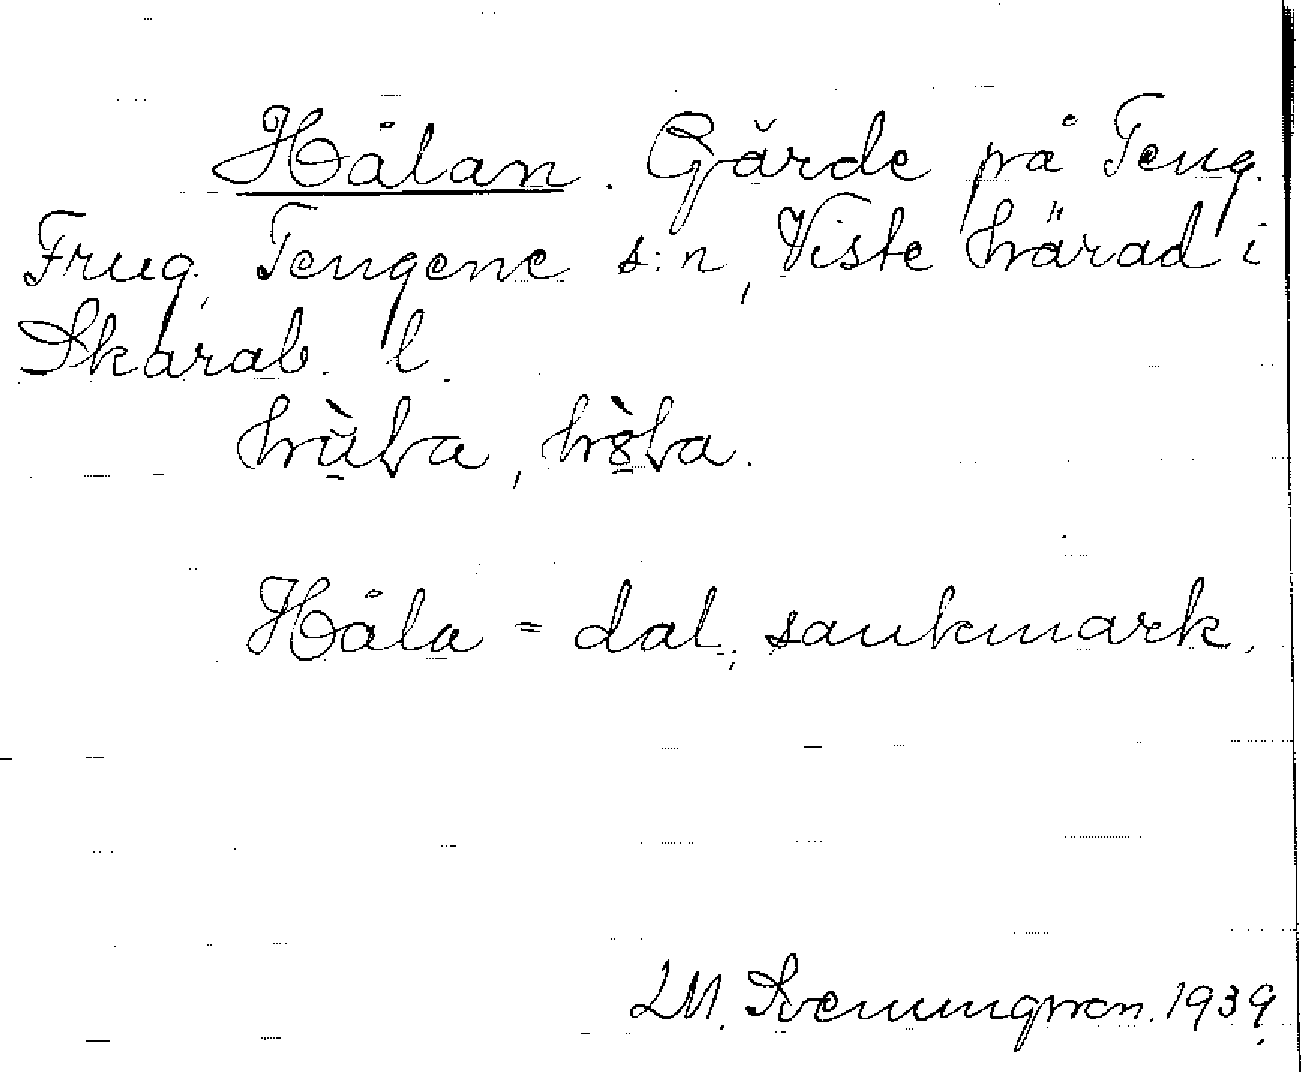 Hålan. Gärde på Teng.
Frug, Tengene s:n, Viste härad i
Skarab. l.
Håla = dal, sankmark.
LM. Svenungsson. 1939.